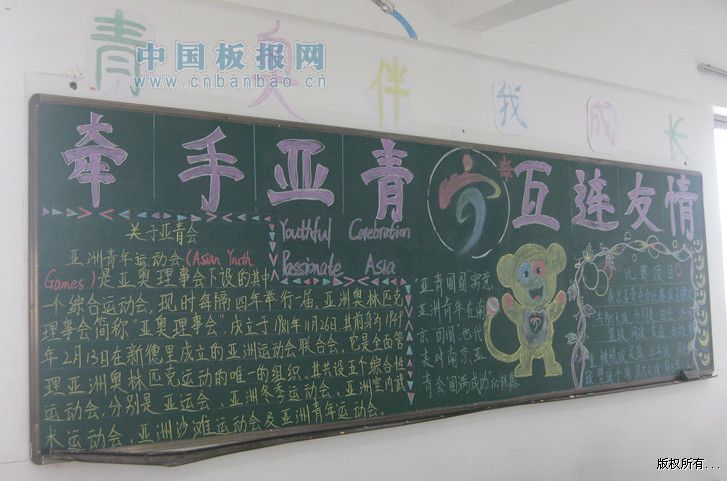 青 春 伴 我 成 长
中国板报网
www.cnbanbao.cn
牵手亚青 互连友情
关于亚青会
亚洲青年运动会(Asian Youth
Games)是亚奥理事会下设的其中
一个综合运动会,现时每隔四年举行一届,亚洲奥林匹克
理事会简称“亚奥理事会”,成立于1981年11月26日,其前身为1949
年2月13日在新德里成立的亚洲运动联合会,它是全面管
理亚洲奥林匹克运动的唯一的组织,其共设五个综合性
运动会,分别是亚运会、亚洲冬季运动会、亚洲室内武
术运动会,亚洲沙滩运动会及亚洲青年运动会.
Youthful Cerebration
Passionate Asia
“亚青圆圆”寓意
亚洲青年在南
京“团圆”,也代
表对南京亚
青会圆满成功的祝愿
比赛项目
版权所有...